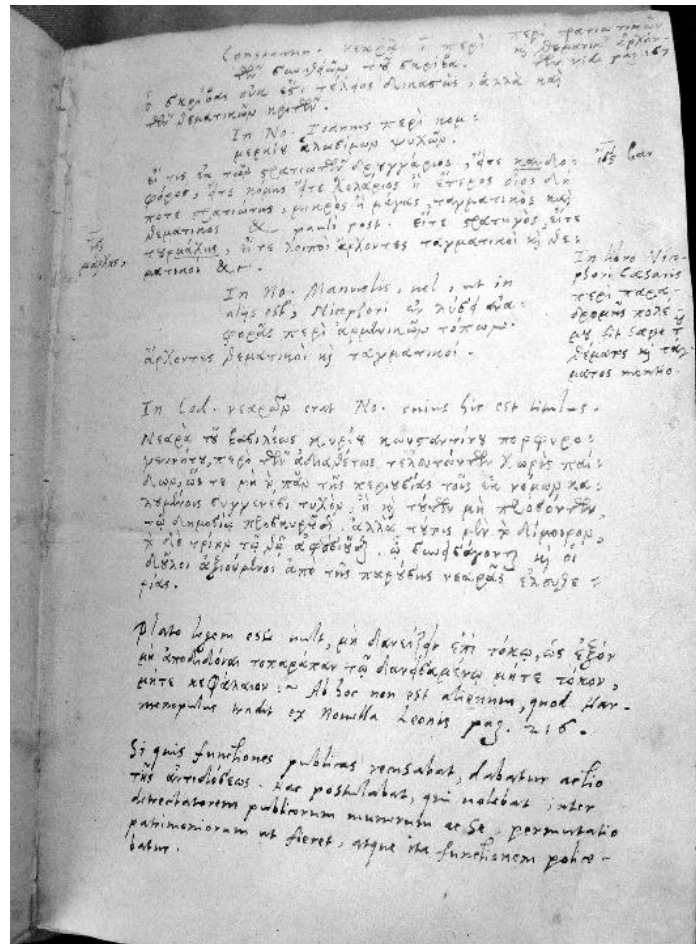 Constantin. νεαρὰ
τῶν τοῦ σκρίβα.
ὁ σκρίβας οὐκ ἔστι δικαστὴς, ἀλλὰ καὶ
τῶν θεματικῶν κριτῶν.
In No. Ioannis περὶ κομ:
μερκίου ἁλωσίμων ψυχῶν.
εἴ τις ἐκ τῶν στρατιωτῶν δρουγγάριος, εἴτε
φόρος, εἴτε κόμης εἴτε ἢ ἕτερος οἷος δή
ποτε στρατιώτης, μικρὸς ἢ μέγας, ταγματικὸς καὶ
θεματικὸς &c. paulò post. εἴτε στρατηγὸς, εἴτε
τουρμάχης, εἴτε λοιποὶ ἄρχοντες ταγματικοὶ κὶ θε:
ματικοὶ &c.
In No. Manuelis, vel, ut in
alijs est, Nicephori ἐν λύσει ἀνα:
φορᾶς περὶ ἀρμενικῶν τόπων.
ἄρχοντες θεματικοὶ κὶ ταγματικοί.
In libro Nice-
phori Caesaris
περὶ παρα:
δρομῆς πολέ
μου fit saepe
θέματος κὶ τάγ:
ματος mentio.
In Cod. νεαρῶν erat No. cuius hic est titulus.
Νεαρὰ τοῦ βασιλέως κυρίου κωνσταντίνου πορφυρο:
γεννήτου, περὶ τῶν ἀδιαθέτως τελευτώντων χωρὶς παί:
δων, ὥς τε μὴ πᾶν τῆς περιουσίας τοῖς ἐκ νόμων κα:
λουμένοις συγγενέσι τυχὸν, ἢ κὶ τούτων μὴ
τῷ δημοσίῳ ἀλλὰ δίμοιρον,
τὸ δὲ τρίτον τῷ θεῷ κὶ οἱ
δοῦλοι ἀξιούμενοι ἀπὸ τῆς παρούσης νεαρᾶς ἐλευθε:
ρίας.
Plato legem esse vult, μὴ δανείζειν ἐπὶ τόκῳ, ὡς ἐξὸν
μὴ ἀποδιδόναι τοπαράπαν τῷ δανεισαμένῳ μήτε τόκον,
μήτε κεφάλαιον :~ Ab hoc non est alienum, quod Har-
menopulus tradit ex Nouella Leonis pag. 216.
Si quis functiones publicas recusabat, dabatur actio
τῆς ἀντιδόσεως. Hac postulabat, qui volebat inter
detrectatorem publicorum munerum ac se, permutatio
patrimoniorum ut fieret, atque ita functionem
batur.